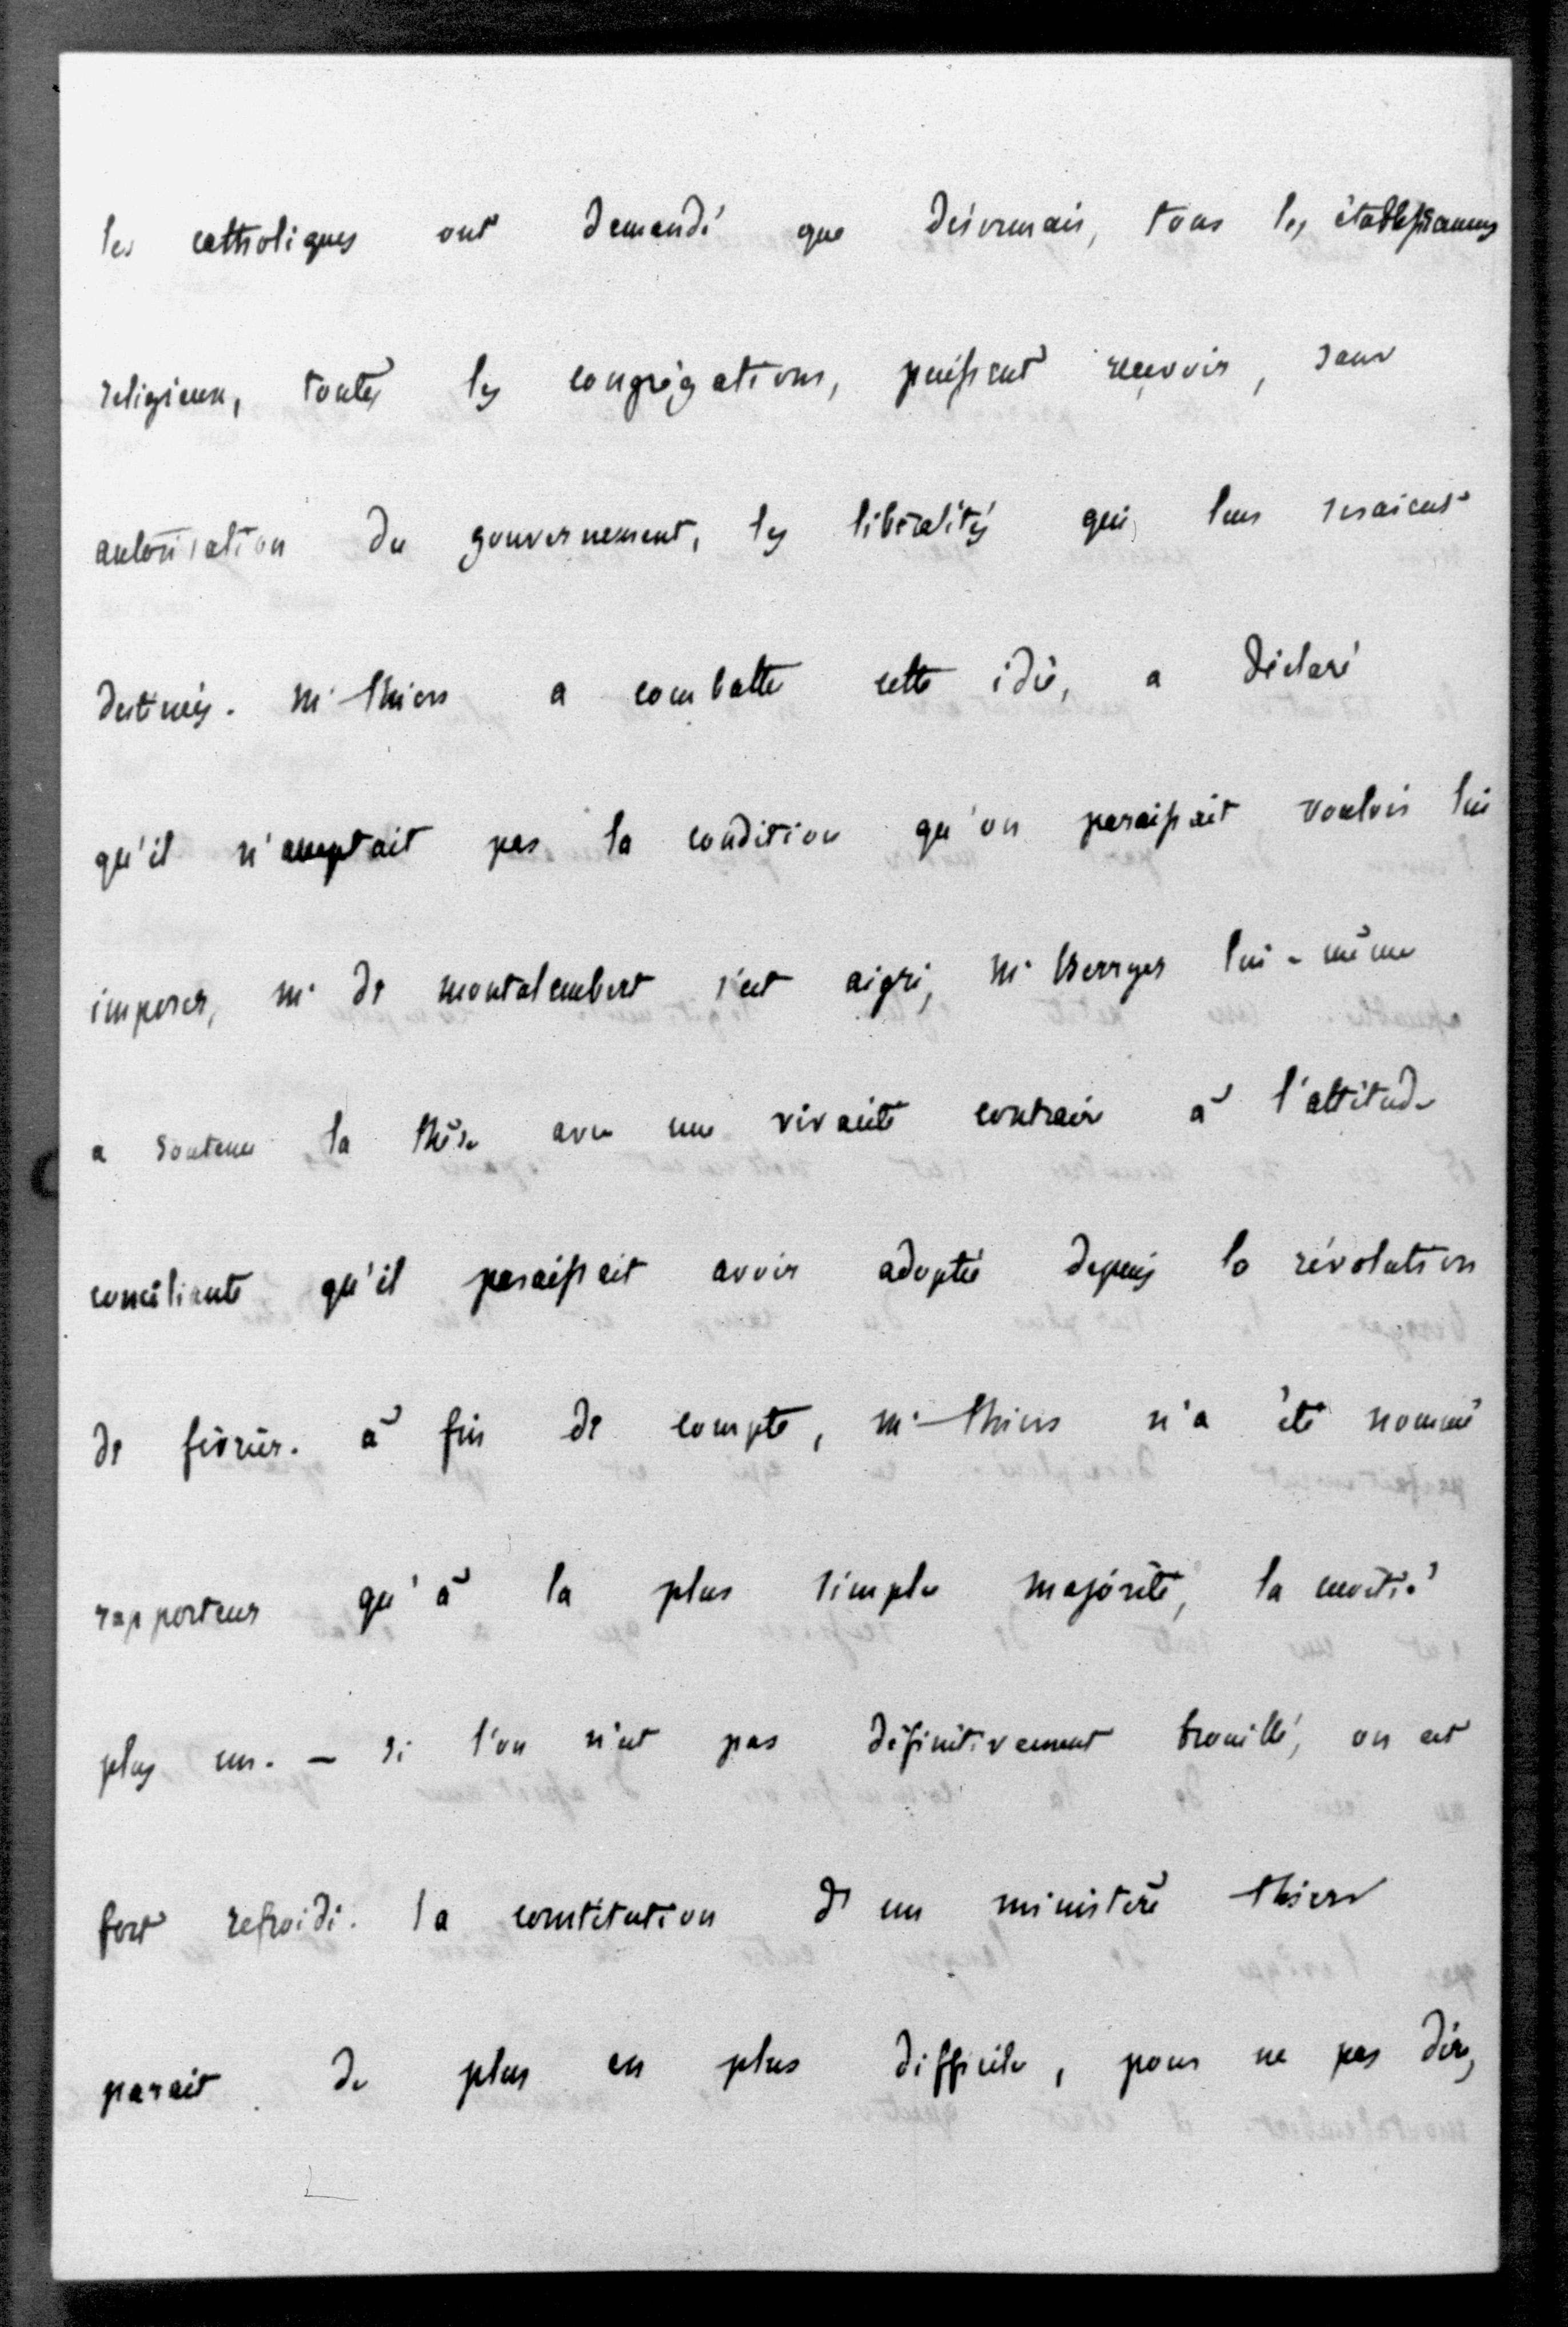 les catholiques ont demandé que désormais, tous les établissemens
religieux, toutes les congrégations, puissent recevoir, sans
autorisation du gouvernement, les libéralités qui leur seraient
destinées. m. thiers a combattu cette idée, a déclaré
qu'il n'acceptait pas la condition qu'on paraissait vouloir lui
imposer, m. de montalembert s'est aigri, m. berryer lui-même
a soutenu la thèse avec une vivacité contraire à l'attitude
conciliante qu'il paraissait avoir adoptée depuis la révolution
de février. à fin de compte, m. thiers n'a été nommé
rapporteur qu'à la plus simple majorité, la moitié
plus un. - si l'on n'est pas définitivement brouillé, on est
fort refroidi. la constitution d'un ministère thiers
parait de plus en plus difficile, pour ne pas dire,